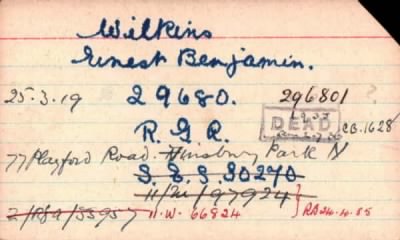 Wilkins
Ernest Benjamin.
25.3.19 29680. 296801
DEAD CB.1628
R.G.A.
77 Playford Road. Finsbury Park N
S.E.S 30270
11/M/97924
2/RGA/55957 11.W. 66824 RA 24.4.55